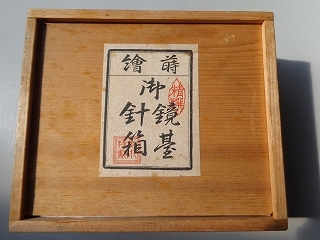 蒔繪
御鏡臺
針箱